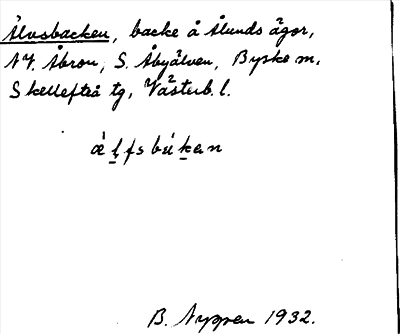 Älvsbacken, backe å Ålunds ägor,
NV. Åbron, S. Åbyälven, Byske sn,
Skellefteå tg, Västerb. l.
ǽl̠fsbúk̠en
B. Nyppen 1932.